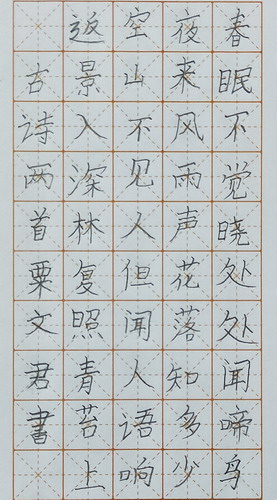 春眠不觉晓处处闻啼鸟
夜来风雨声花落知多少
空山不见人但闻人语响
返景入深林复照青苔上
古诗两首粟文君書